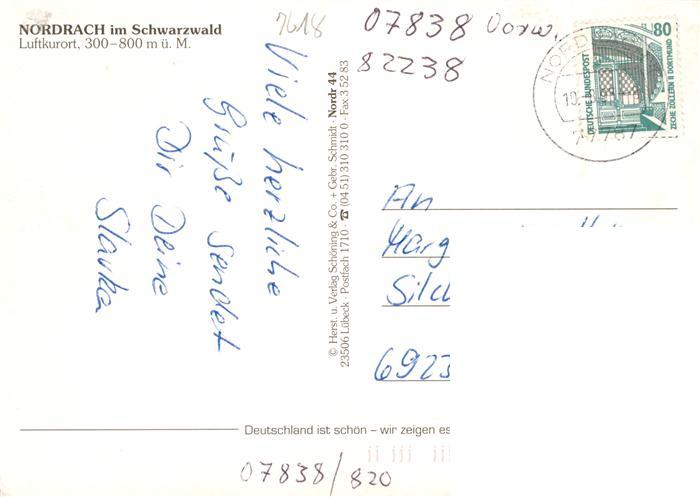 NORDRACH im Schwarzwald
Luftkurort, 300–800 m ü. M.
7618
07838 Vorw.
82238
Viele herzliche
Grüße sendet
Dir Deine
Slavka
© Herst. u. Verlag Schöning & Co. + Gebr. Schmidt · Nordr 44
23506 Lübeck · Postfach 1710 · ☎ (04 51) 310 310 0 · Fax 3 52 83
80
DEUTSCHE BUNDESPOST
ZECHE ZOLLERN II DORTMUND
NORD
77787
An
Marg
Silc
6923
Deutschland ist schön – wir zeigen es
07838/820